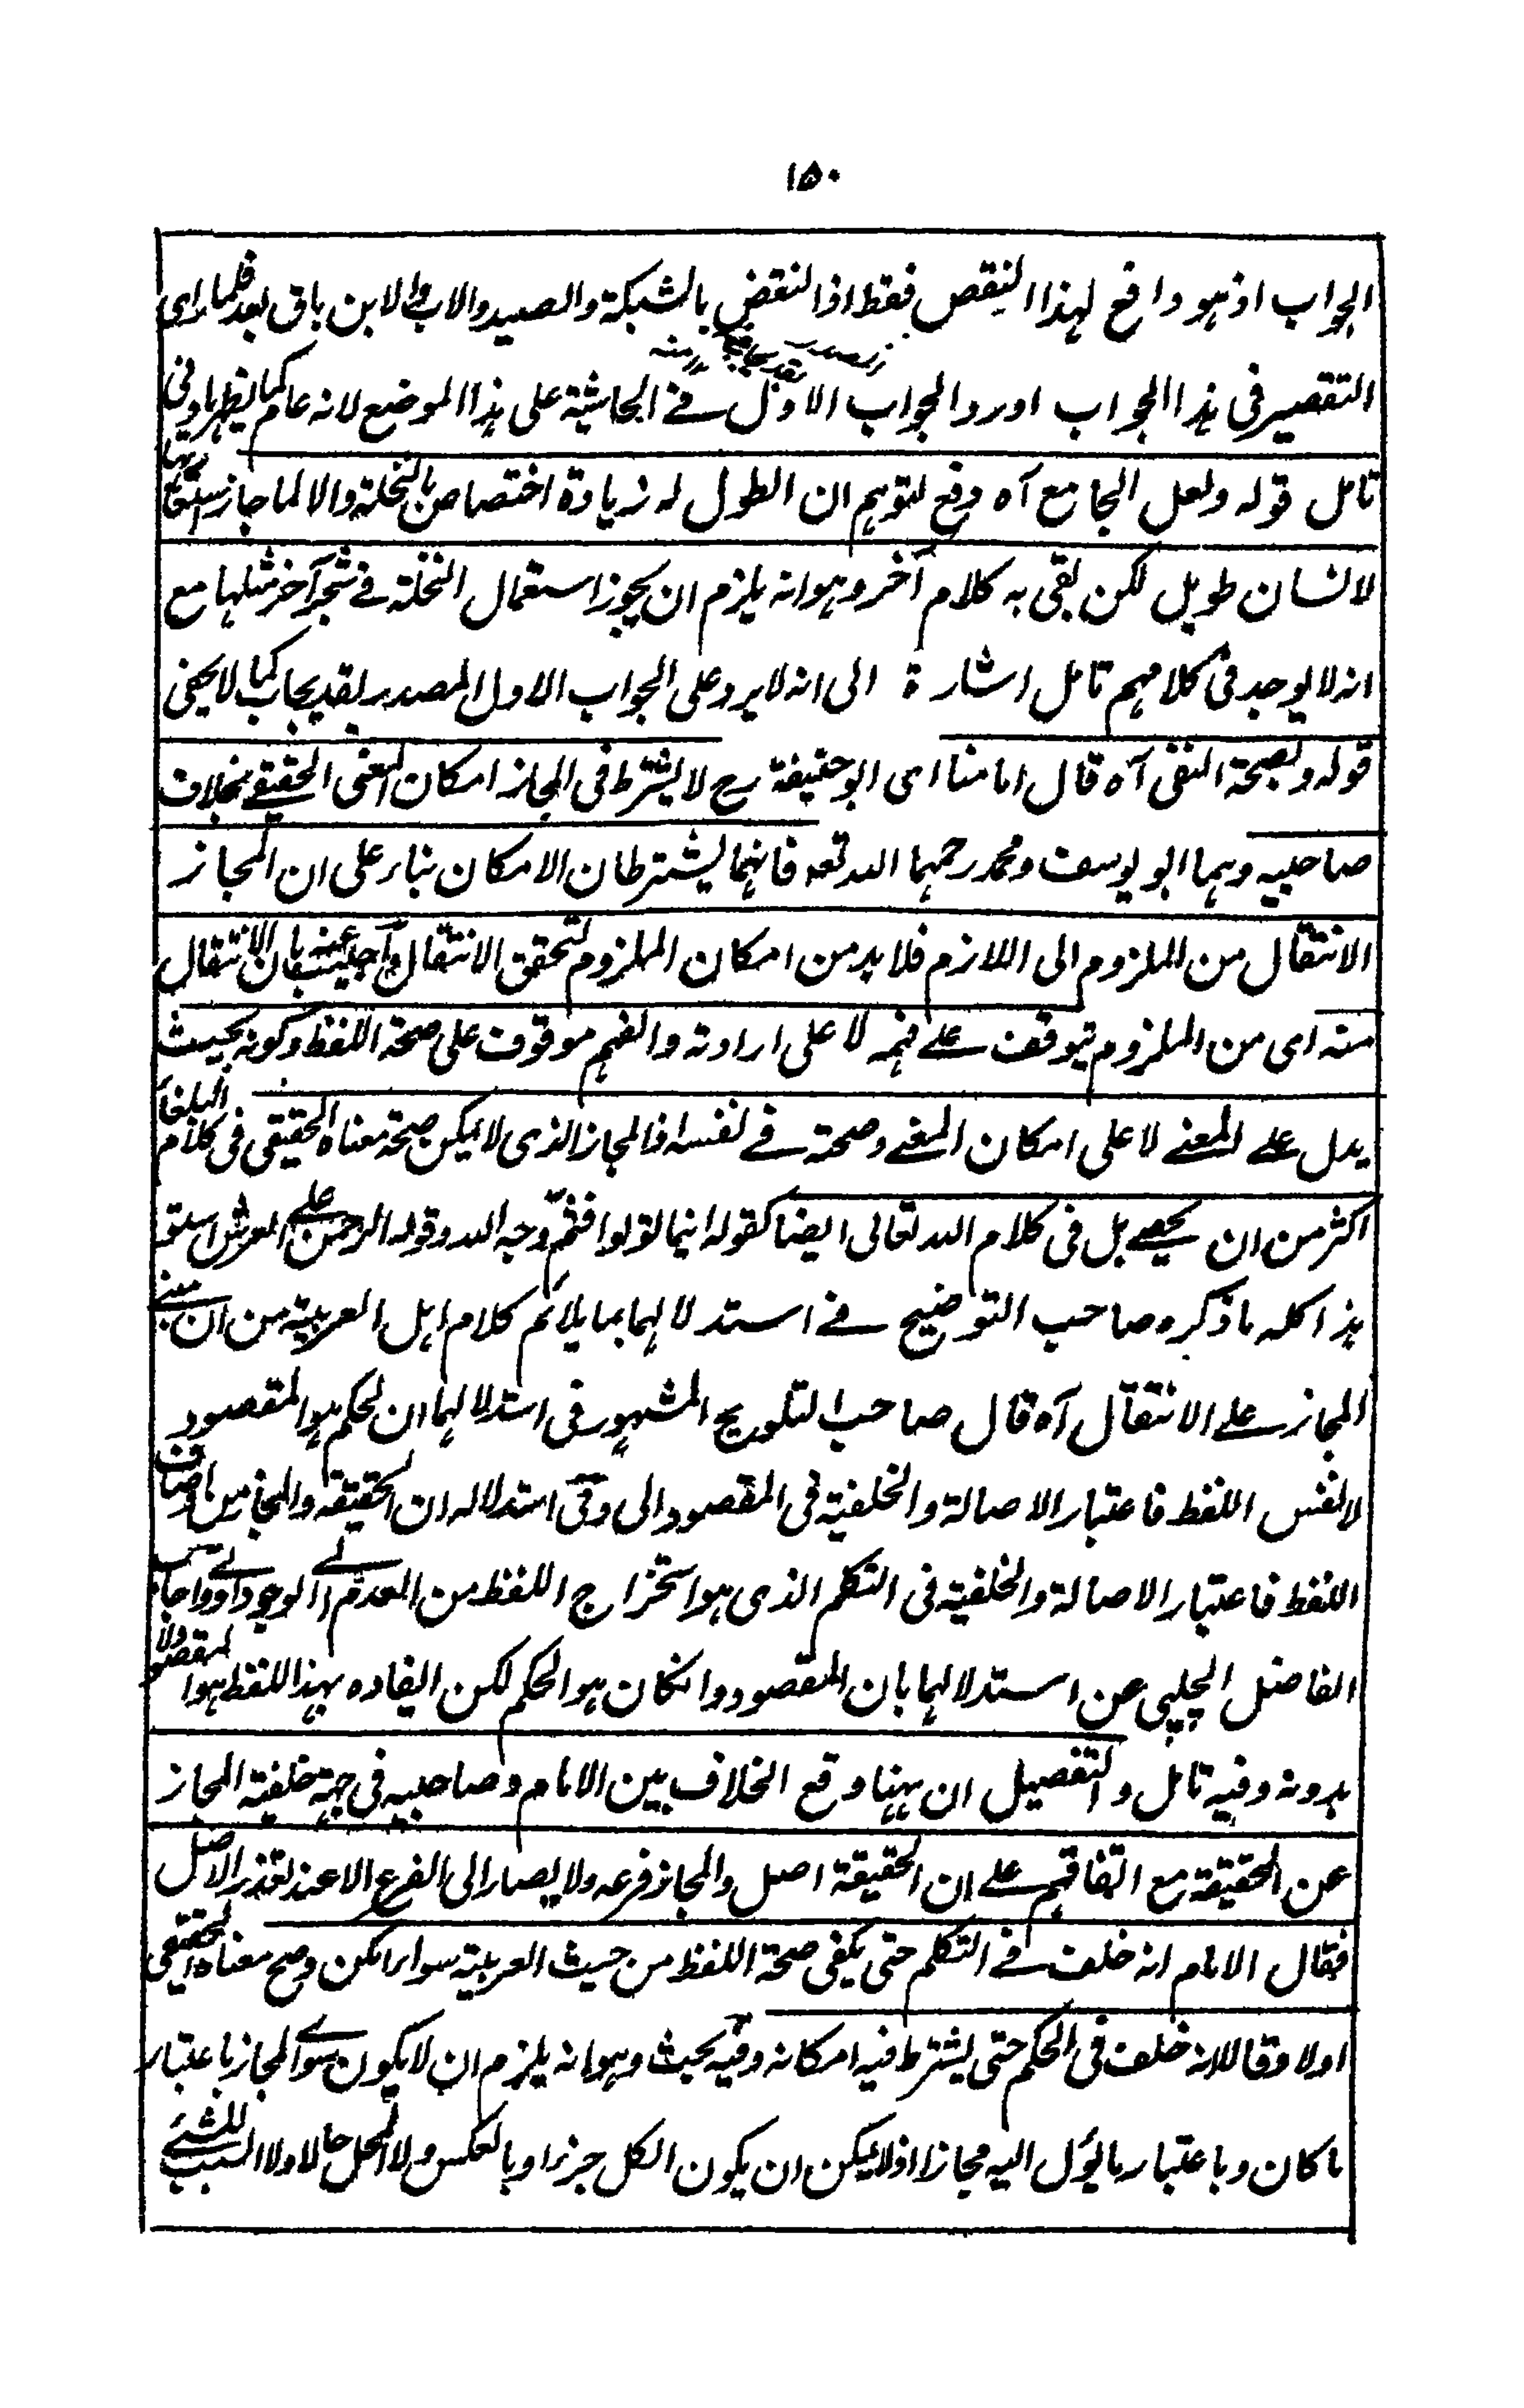 ١٥٠
الجواب اذ هو دافع لهذا النقص فقط اذا النقض بالشبكة والصيد والاب والابن باق بعد فلما رای
التقصير فی هذا الجواب اورد الجواب الاول فے الحاشية علی هذا الموضع لانه عام كما يظهر
تامل قوله ولعل الجامع آه دفع لتوهم ان الطول له زيادة اختصاص بالنخلة والا لما جاز استعارتها
لانسان طويل لكن بقی به كلام آخر وهو انه يلزم ان يجوز استعمال النخلة فے شجر آخر مثلها مع
انه لا يوجد فی كلامهم تامل اشارة الی انه لا يرد علی الجواب الاول المصدر بقد يجاب كما لا يخفی
قوله ولصحة النفی آه قال امامنا ای ابو حنيفة رح لا يشترط فی المجاز امكان المعنی الحقيقے بخلاف
صاحبيه وهما ابو يوسف ومحمد رحمهما الله تعہ فانهما يشترطان الامكان بناء علی ان المجاز
الانتقال من الملزوم الی اللازم فلا بد من امكان الملزوم لتحقق الانتقال واجيب عنه بان الانتقال
منه ای من الملزوم يتوقف علے فهمه لا علی ارادته والفهم موقوف علی صحة اللفظ وكونه بحيث
يدل علے المعنے لا علی امكان المعنے وصحته فے نفسه اذ المجاز الذی لا يمكن صحة معناه الحقيقی فی كلام البلغاء
اكثر من ان يحصے بل فی كلام الله تعالی ايضا كقوله اينما تولوا فثم وجه الله وقوله الرحمن علے العرش استوی
هذا كله ما ذكره صاحب التوضيح فے استدلالهما بما يلائم كلام اهل العربية من ان مبنے
المجاز علے الانتقال آه قال صاحب التلويح المشهور فی استدلالهما ان الحكم هو المقصود
لا نفس اللفظ فاعتبار الاصالة والخلفية فی المقصود اولی وفی استدلاله ان الحقيقة والمجاز من اوصاف
اللفظ فاعتبار الاصالة والخلفية فی التكلم الذی هو استخراج اللفظ من العدم الے الوجود اولے واجاب
الفاضل الچلپی عن استدلالهما بان المقصود وان كان هو الحكم لكن افادة بهذا اللفظ هو المقصود لا
بدونه وفيه تامل والتفصيل ان ههنا وقع الخلاف بين الامام وصاحبيه فی جهة خلفية المجاز
عن الحقيقة مع اتفاقهم علے ان الحقيقة اصل والمجاز فرعه ولا يصار الی الفرع الا عند تعذر الاصل
فقال الامام انه خلف فے التكلم حتی يكفی صحة اللفظ من حيث العربية سواء امكن وصح معناه الحقيقی
اولا وقالا انه خلف فی الحكم حتی يشترط فيه امكانه وفيه بحث وهو انه يلزم ان لا يكون سوی المجاز باعتبار
ما كان وباعتبار ما يؤل اليه مجازا اذ لا يمكن ان يكون الكل جزءا وبالعكس ولا المحل حالا ولا السبب للشئے